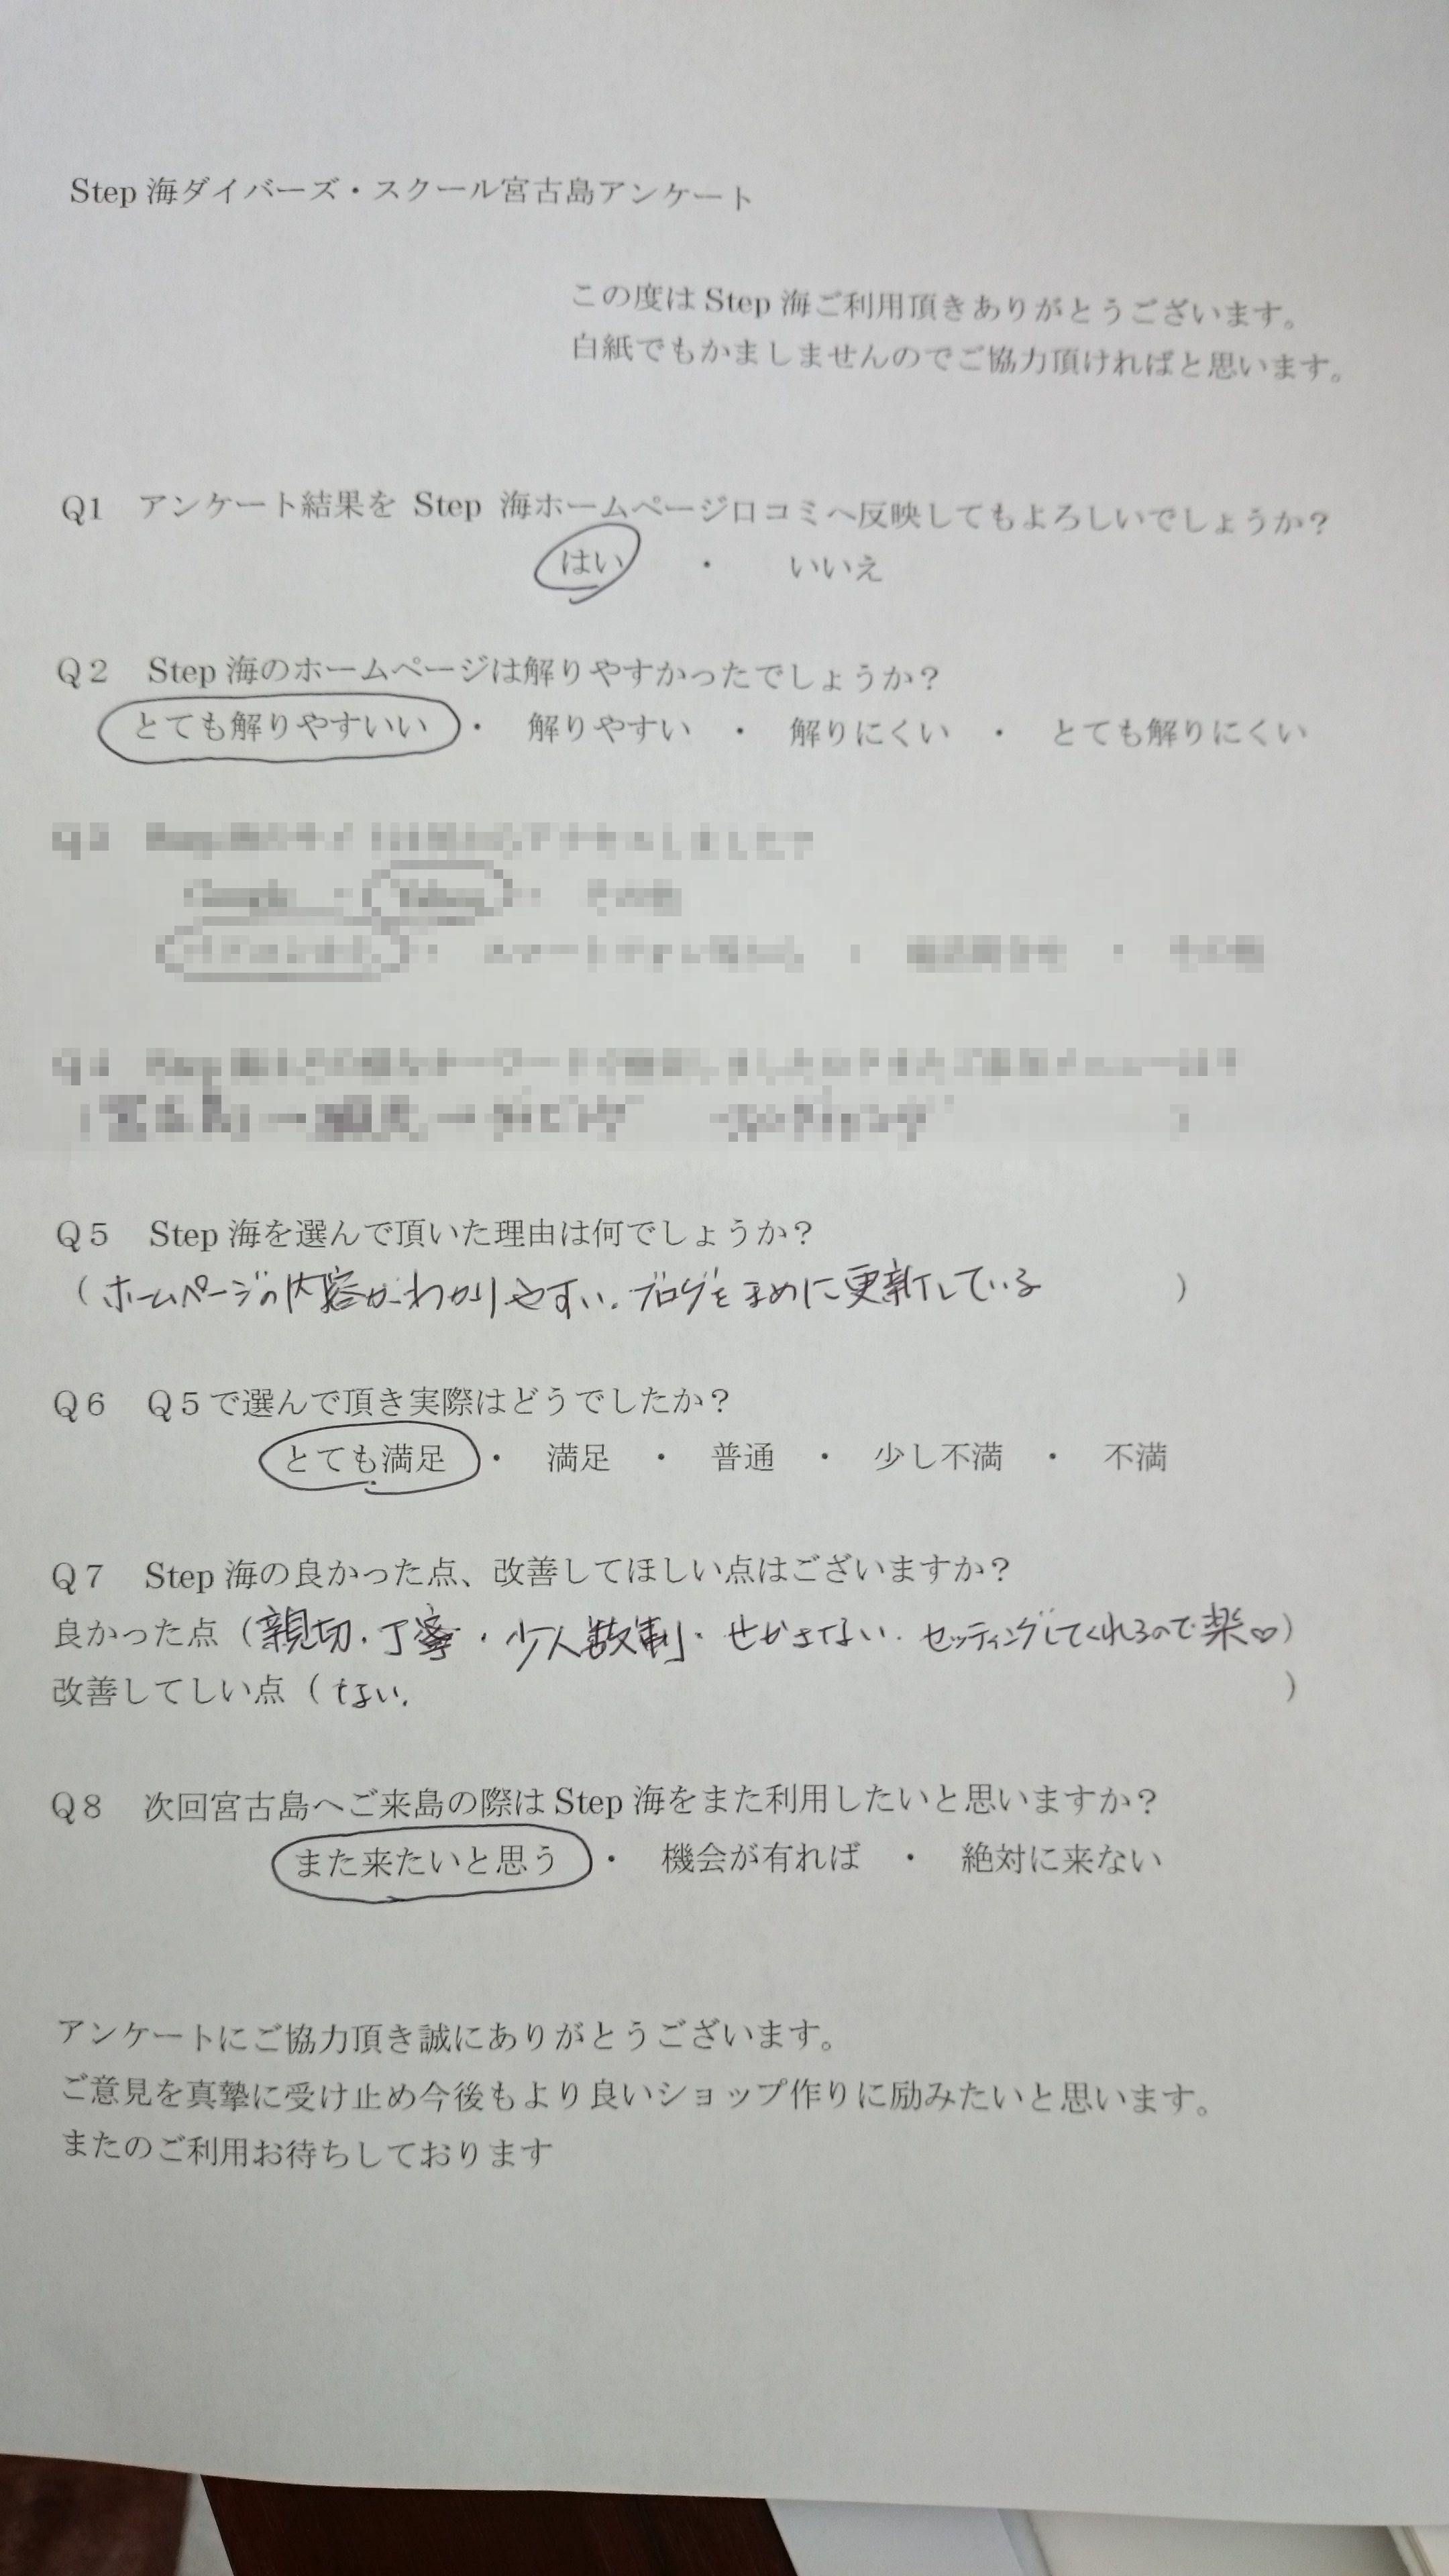 Step 海ダイバーズ・スクール宮古島アンケート
この度は Step 海ご利用頂きありがとうございます。
白紙でもかましませんのでご協力頂ければと思います。
Q1 アンケート結果を Step 海ホームページ口コミへ反映してもよろしいでしょうか？
はい ・ いいえ
Q２ Step 海のホームページは解りやすかったでしょうか？
とても解りやすいい ・ 解りやすい ・ 解りにくい ・ とても解りにくい
Q５ Step 海を選んで頂いた理由は何でしょうか？
（ホームページの内容がわかりやすい。ブログをまめに更新している ）
Q６ Q５で選んで頂き実際はどうでしたか？
とても満足 ・ 満足 ・ 普通 ・ 少し不満 ・ 不満
Q７ Step 海の良かった点、改善してほしい点はございますか？
良かった点（親切・丁寧・少人数制・せかさない・セッティングしてくれるので楽♡）
改善してしい点（ない。 ）
Q８ 次回宮古島へご来島の際は Step 海をまた利用したいと思いますか？
また来たいと思う ・ 機会が有れば ・ 絶対に来ない
アンケートにご協力頂き誠にありがとうございます。
ご意見を真摯に受け止め今後もより良いショップ作りに励みたいと思います。
またのご利用お待ちしております